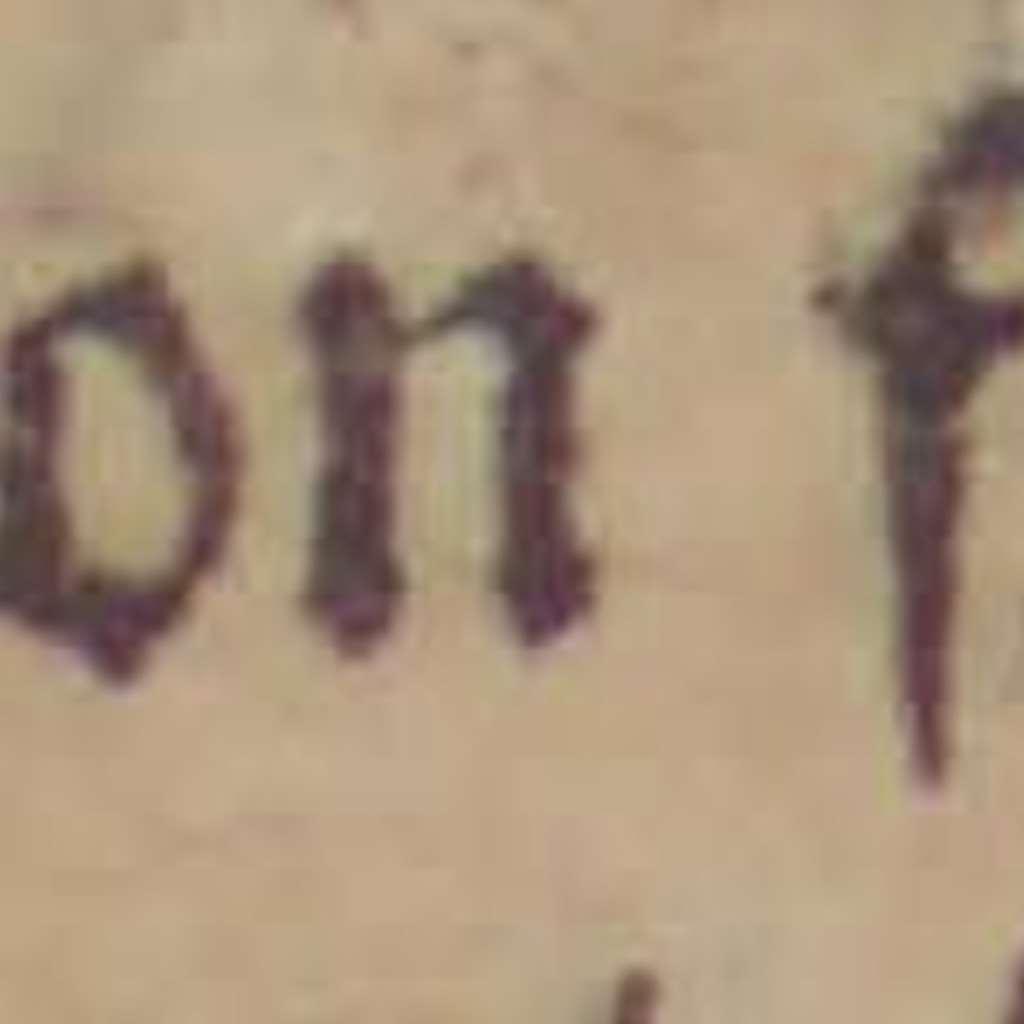 on f